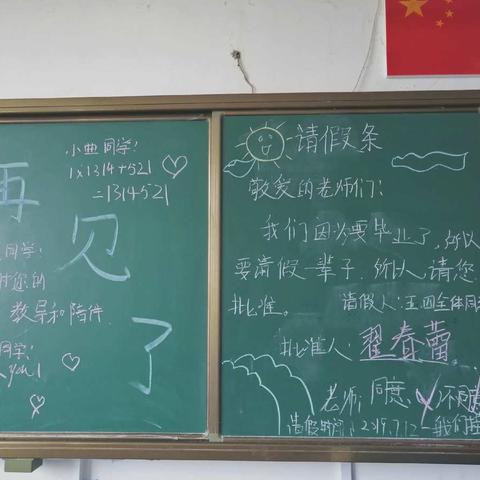 再
见
了
小曲同学:
1x1314+521
=1314521
同学:
您的
教导和陪伴
同学:
you!
请假条
敬爱的老师们:
我们因为要毕业了,所以
要请假一辈子.所以请您
批准。
请假人:王四全体同
批准人:翟春蕾。
老师:同意、不同意
请假时间:2019.7.12-我们